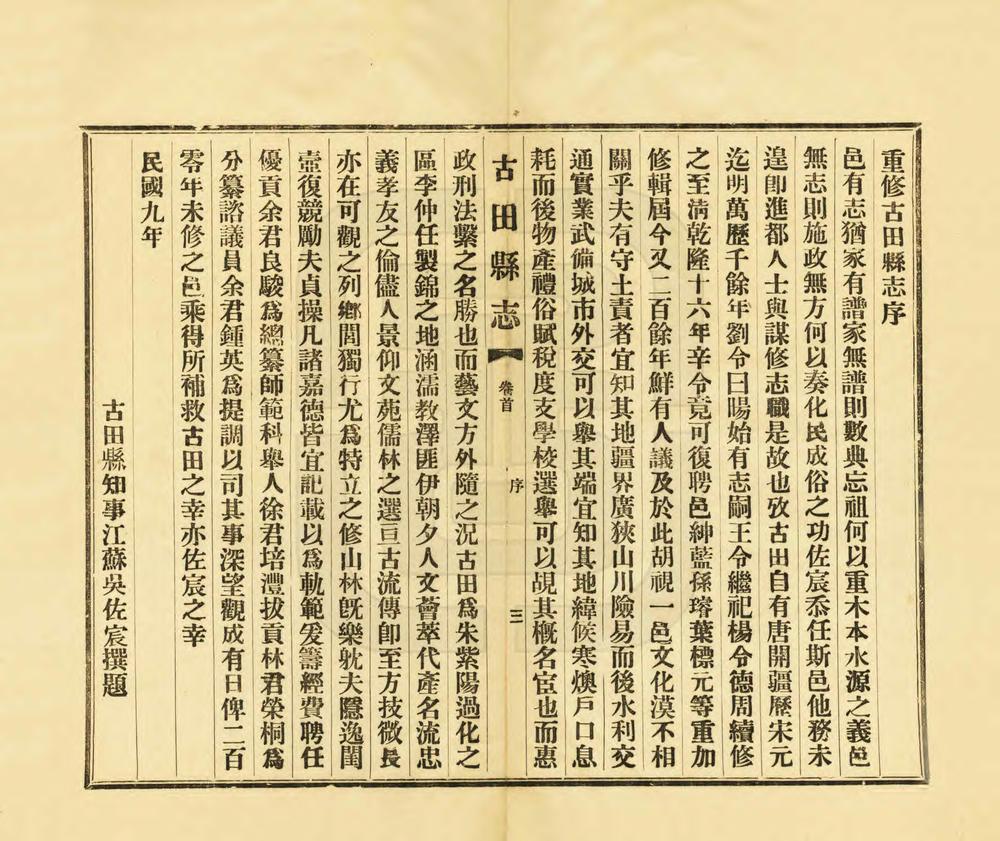 重修古田縣志序
邑有志猶家有譜家無譜則數典忘祖何以重木本水源之義邑
無志則施政無方何以奏化民成俗之功佐宸忝任斯邑他務未
遑卽進都人士與謀修志職是故也攷古田自有唐開疆歷宋元
迄明萬歷千餘年劉令曰暘始有志嗣王令繼祀楊令德周續修
之至清乾隆十六年辛令竟可復聘邑紳藍孫璿葉標元等重加
修輯屆今又二百餘年鮮有人議及於此胡視一邑文化漠不相
關乎夫有守土責者宜知其地疆界廣狹山川險易而後水利交
通實業武備城市外交可以舉其端宜知其地緯候寒燠戶口息
耗而後物產禮俗賦稅度支學校選舉可以覘其概名宦也而惠
古田縣志
卷首
序
三
政刑法繫之名勝也而藝文方外隨之況古田爲朱紫陽過化之
區李仲任製錦之地涵濡教澤匪伊朝夕人文薈萃代產名流忠
義孝友之倫儘人景仰文苑儒林之選亘古流傳卽至方技微長
亦在可觀之列鄉閭獨行尤爲特立之修山林旣樂躭夫隱逸閨
壼復競勵夫貞操凡諸嘉德皆宜記載以爲軌範爰籌經費聘任
優貢余君良駿爲總纂師範科舉人徐君培灃拔貢林君榮桐爲
分纂諮議員余君鍾英爲提調以司其事深望觀成有日俾二百
零年未修之邑乘得所補救古田之幸亦佐宸之幸
民國九年
古田縣知事江蘇吳佐宸撰題